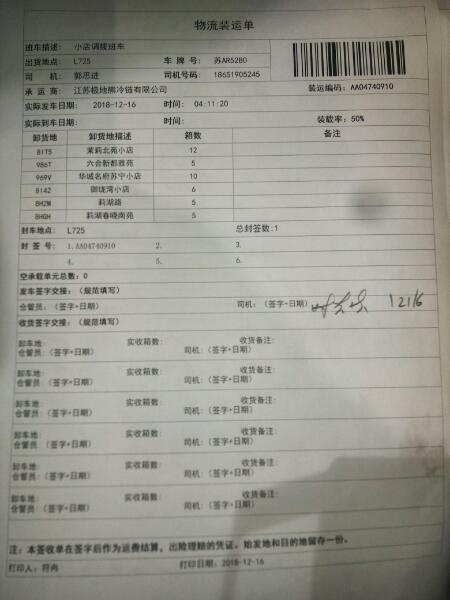 物流装运单
班车描述: 小店调拨班车
出货地点: L725 车 牌 号: 苏AR52B0
司 机: 郭思进 司机号码: 18651905245
承 运 商: 江苏极地熊冷链有限公司 装运编码: AA04740910
实际发车日期: 2018-12-16 时间: 04:11:20
实际到车日期: 时间: 装载率: 50%
卸货地 卸货地描述 箱数 备注
8IT5 茉莉北苑小店 12
986T 六合新都雅苑 5
969V 华城名府苏宁小店 10
8I42 御珑湾小店 6
8H2M 莉湖路 5
8HGH 莉湖春晓南苑 5
封车地点: L725 总封签数:1
封 签 号: 1.AA04740910 2. 3.
4. 5. 6.
空承载单元总数: 0
发车签字交接: (规范填写)
仓管员: (签字+日期) 司机: (签字+日期) 12116
收货签字交接: (规范填写)
卸车地: 实收箱数: 收货备注:
仓管员: (签字+日期) 司机: (签字+日期)
卸车地: 实收箱数: 收货备注:
仓管员: (签字+日期) 司机: (签字+日期)
卸车地: 实收箱数: 收货备注:
仓管员: (签字+日期) 司机: (签字+日期)
卸车地: 实收箱数: 收货备注:
仓管员: (签字+日期) 司机: (签字+日期)
卸车地: 实收箱数: 收货备注:
仓管员: (签字+日期) 司机: (签字+日期)
卸车地: 实收箱数: 收货备注:
仓管员: (签字+日期) 司机: (签字+日期)
注: 本签收单在签字后作为运费结算, 出险理赔的凭证, 始发地和目的地留存一份。
打印人: 符冉 打印日期: 2018-12-16